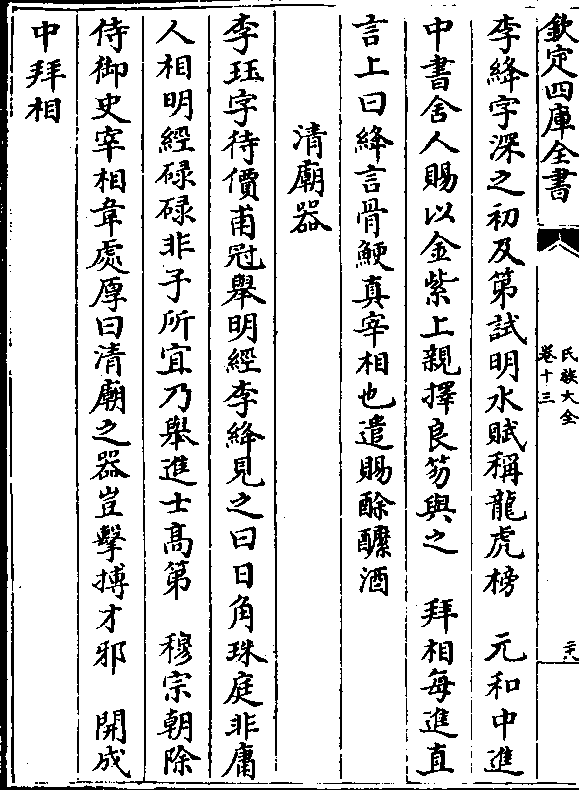 欽定四庫全書
氏族大全
卷十三
二十八
李絳字深之初及第試明水賦稱龍虎榜　元和中進
中書舍人賜以金紫上親擇良笏與之　拜相每進直
言上曰絳言骨鯁真宰相也遣賜酴醿酒
清廟器
李珏字待價甫冠舉明經李絳見之曰日角珠庭非庸
人相明經碌碌非子所宜乃舉進士高第　穆宗朝除
侍御史宰相韋處厚曰清廟之器豈擊搏才邪　開成
中拜相